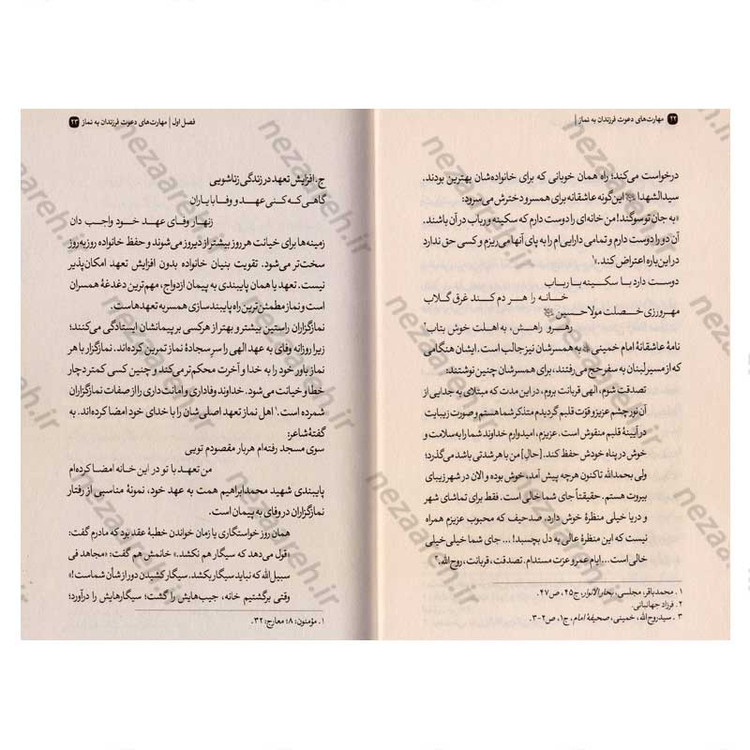 ۲۲ مهارت‌های دعوت فرزندان به نماز |
درخواست می‌کند؛ راه همان خوبانی که برای خانواده‌شان بهترین بودند.
سیدالشهدا این‌گونه عاشقانه برای همسر و دخترش می‌سرود:
«به جان تو سوگند! من خانه‌ای را دوست دارم که سکینه و رباب در آن باشند.
آن دو را دوست دارم و تمامی دارایی‌ام را به پای آنها می‌ریزم و کسی حق ندارد
در این‌باره اعتراض کند.»۱
دوست دارد با سکینه بارباب
خانه را هر دم کند غرق گلاب
مهرورزی خصلت مولا حسین
رهرو راهش، به اهلت خوش بتاب۲
نامهٔ عاشقانهٔ امام خمینی به همسرشان نیز جالب است. ایشان هنگامی
که از مسیر لبنان به سفر حج می‌رفتند، برای همسرشان چنین نوشتند:
تصدقت شوم، الهی قربانت بروم، در این مدت که مبتلای به جدایی از
آن نور چشم عزیز و قوّت قلبم گردیدم متذکر شما هستم و صورت زیبایت
در آیینهٔ قلبم منقوش است. عزیزم، امیدوارم خداوند شما را به سلامت و
خوش در پناه خودش حفظ کند. [حال] من با هر شدتی باشد می‌گذرد؛
ولی بحمدالله تاکنون هرچه پیش آمد، خوش بوده و الان در شهر زیبای
بیروت هستم. حقیقتاً جای شما خالی است. فقط برای تماشای شهر
و دریا خیلی منظرهٔ خوش دارد، صدحیف که محبوب عزیزم همراه
نیست که این منظرهٔ عالی به دل بچسبد! ... جای شما خیلی خیلی
خالی است... ایام عمر و عزت مستدام. تصدقت، قربانت، روح‌الله.۳
۱. محمدباقر، مجلسی، بحارالانوار، ج۴۵، ص۴۷.
۲. فرزاد جهانبانی.
۳. سیدروح‌الله، خمینی، صحیفهٔ امام، ج۱، ص۲-۳.
فصل اول | مهارت‌های دعوت فرزندان به نماز ۲۳
ج. افزایش تعهد در زندگی زناشویی
گاهی که کنی عهد و وفا با یاران
زنهار وفای عهد خود واجب دان
زمینه‌ها برای خیانت هر روز بیشتر از دیروز می‌شوند و حفظ خانواده روزبه‌روز
سخت‌تر می‌شود. تقویت بنیان خانواده بدون افزایش تعهد امکان‌پذیر
نیست. تعهد یا همان پایبندی به پیمان ازدواج، مهم‌ترین دغدغهٔ همسران
است و نماز مطمئن‌ترین راه پایبندسازی همسر به تعهدهاست.
نمازگزاران راستین بیشتر و بهتر از هرکسی بر پیمانشان ایستادگی می‌کنند؛
زیرا روزانه وفای به عهد الهی را سر سجادهٔ نماز تمرین کرده‌اند. نمازگزار با هر
نماز باور خود را به خدا و آخرت محکم‌تر می‌کند و چنین کسی کمتر دچار
خطا و خیانت می‌شود. خداوند وفاداری و امانت‌داری را از صفات نمازگزاران
شمرده است.۱ اهل نماز تعهد اصلی‌شان را با خدای خود امضا کرده‌اند. به
گفتهٔ شاعر:
سوی مسجد رفته‌ام هربار مقصودم تویی
من تعهد با تو در این خانه امضا کرده‌ام
پایبندی شهید محمدابراهیم همت به عهد خود، نمونهٔ مناسبی از رفتار
نمازگزاران در وفای به پیمان است.
همان روز خواستگاری یا زمان خواندن خطبهٔ عقد بود که مادرم گفت:
«قول می‌دهد که سیگار هم نکشد.» خانمش هم گفت: «مجاهد فی
سبیل‌الله که نباید سیگار بکشد. سیگار کشیدن دور از شأن شماست!»
وقتی برگشتیم خانه، جیب‌هایش را گشت؛ سیگارهایش را درآورد؛
۱. مؤمنون: ۸؛ معارج: ۳۲.
nezaareh.ir